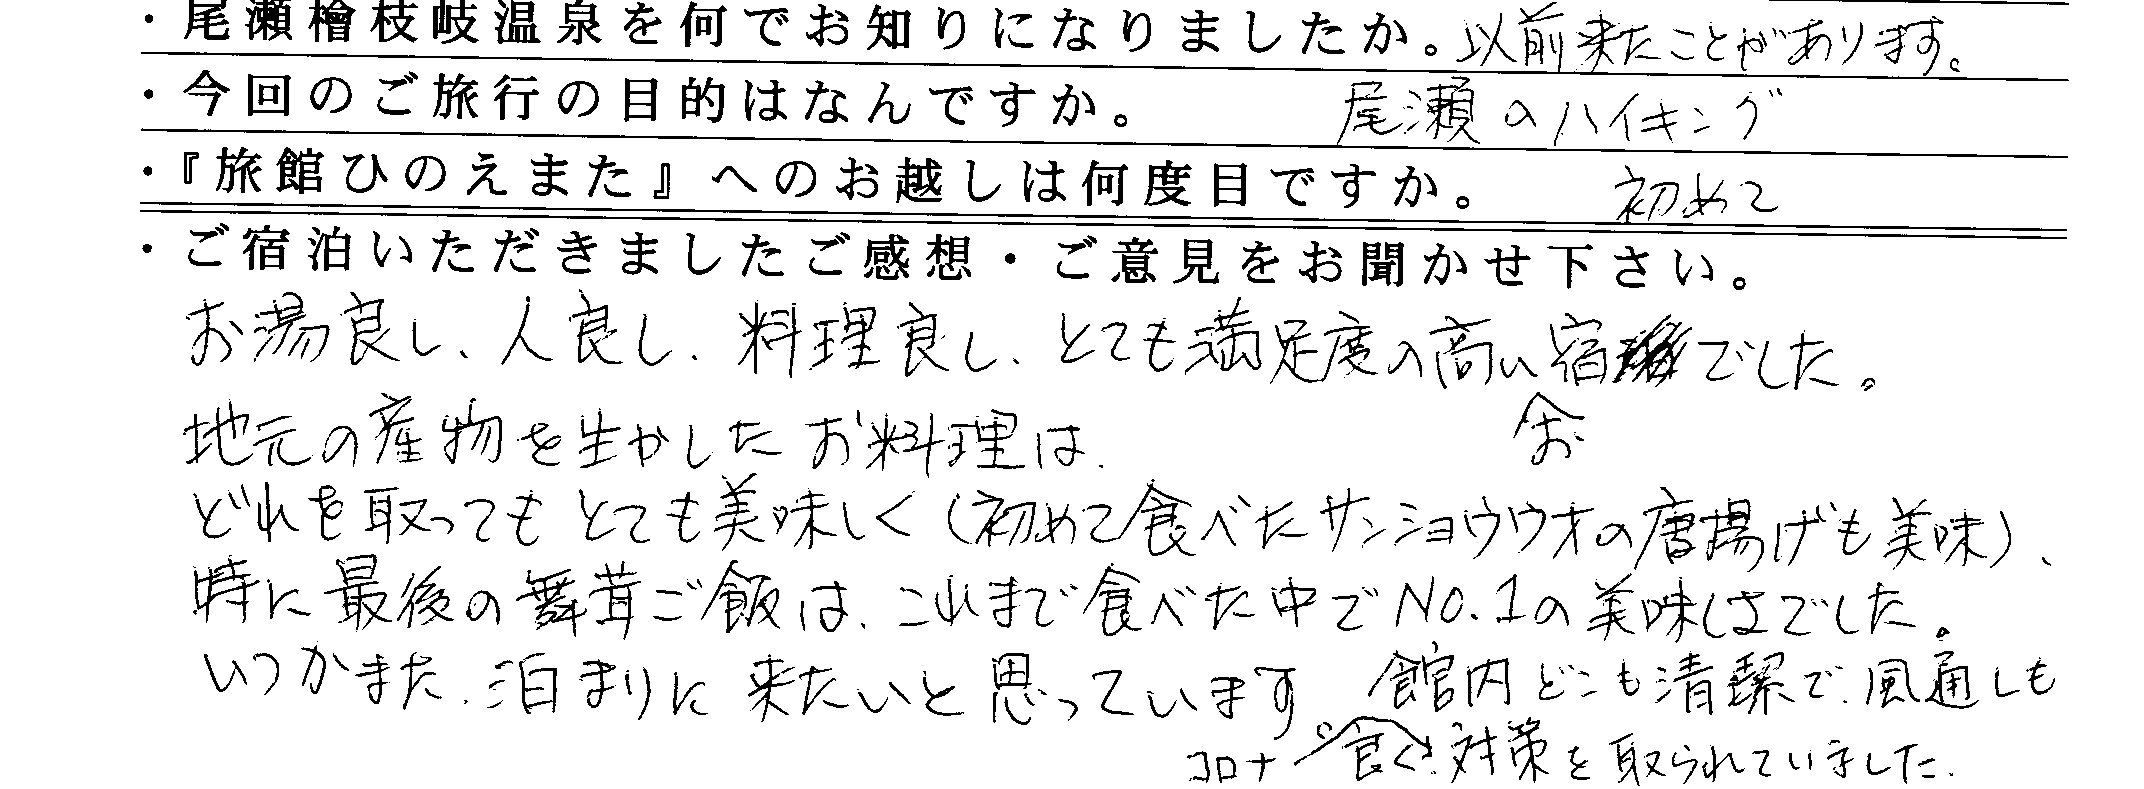 ・尾瀬檜枝岐温泉を何でお知りになりましたか。以前来たことがあります。
・今回のご旅行の目的はなんですか。 尾瀬のハイキング
・『旅館ひのえまた』へのお越しは何度目ですか。 初めて
・ご宿泊いただきましたご感想・ご意見をお聞かせ下さい。
お湯良し、人良し、料理良し、とても満足度の高いお宿でした。
地元の産物を生かしたお料理は、
どれを取ってもとても美味しく(初めて食べたサンショウウオの唐揚げも美味)、
特に最後の舞茸ご飯は、これまで食べた中でNo.1の美味しさでした。
いつかまた、泊まりに来たいと思っています。
館内どこも清潔で、風通しも
良く、コロナ対策を取られていました。